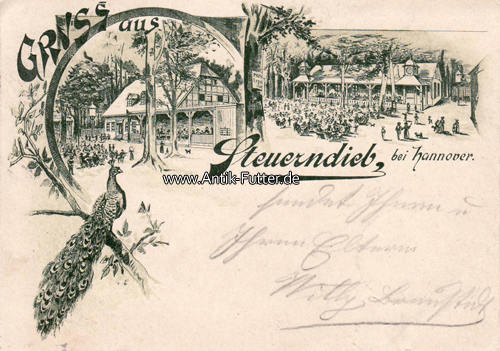 Gruss aus
Steuerndieb,
bei Hannover.
www.Antik-Futter.de
sendet Ihnen u
Ihren Eltern
Willy